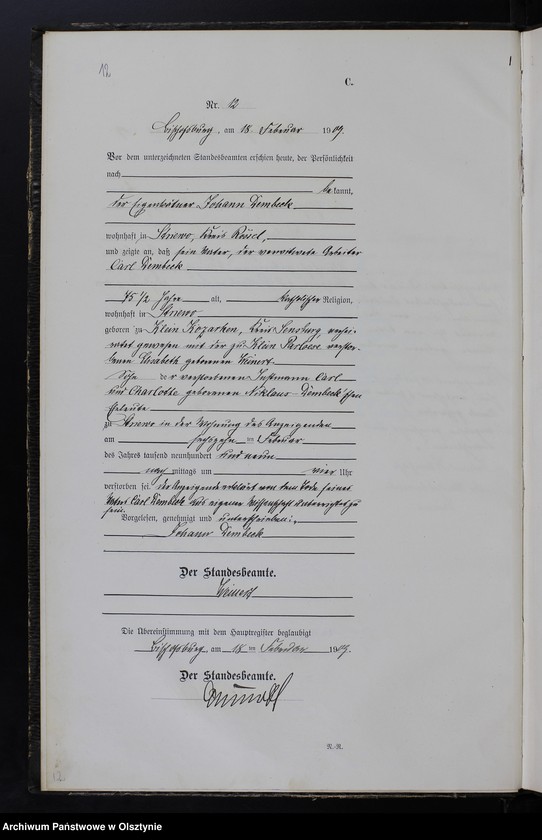 12
C.
Nr. 12
Bischofsburg, am 18. Februar 1909.
Vor dem unterzeichneten Standesbeamten erschien heute, der Persönlichkeit
nach
bekannt,
der Eigenkätner Johann Dembeck
wohnhaft in Stnewo, Kreis Rössel,
und zeigte an, daß sein Vater, der verwitwete Arbeiter
Carl Dembeck
75 1/2 Jahre alt, katholischer Religion,
wohnhaft in Stnewo
geboren zu Klein Kozarken, Kreis Sensburg, verhei-
ratet gewesen mit der zu Klein Parloese verstor-
benen Elisabeth geborenen
Sohn der verstorbenen Instmann Carl
und Charlotte geborenen Niklaus-Dembeck'schen
Eheleute
zu Stnewo in der Wohnung des Anzeigenden
am sechszehn ten Februar
des Jahres tausend neunhundert und neun
nachmittags um vier Uhr
verstorben sei. Der Anzeigende erklärt von dem Tode seines
Vaters Carl Dembeck aus eigener Wissenschaft unterrichtet zu
sein.
Vorgelesen, genehmigt und unterschrieben:
Johann Dembeck
Der Standesbeamte.
Die Übereinstimmung mit dem Hauptregister beglaubigt
Bischofsburg, am 18 ten Februar 1909.
Der Standesbeamte.
N.-R.
12
Archiwum Państwowe w Olsztynie